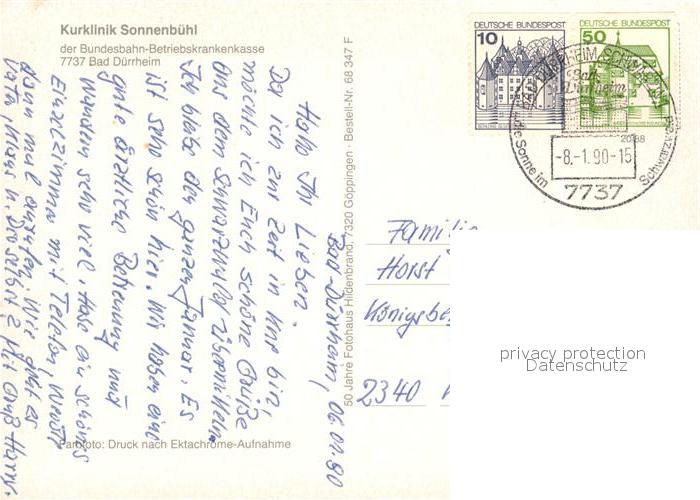 Kurklinik Sonnenbühl
der Bundesbahn-Betriebskrankenkasse
7737 Bad Dürrheim
DEUTSCHE BUNDESPOST
10
DEUTSCHE BUNDESPOST
50
BAD DÜRRHEIM SCHWARZWALD
Bad
Dürrheim
-8.-1.90-15
7737
die Sonne im
Schwarzwald
Bad-Dürrheim, 06.01.90
Hallo Ihr Lieben.
Da ich zur Zeit in Kur bin,
möchte ich Euch schöne Grüße
aus dem Schwarzwald übermitteln.
Ich bleibe den ganzen Januar. Es
ist sehr schön hier. Wir haben eine
gute ärztliche Betreuung und
wandern sehr viel. Habe ein schönes
Einzelzimmer mit Telefon,
dann mal anrufen. Wie geht es
Vati, Klaus u. Gruß Harry.
50 Jahre Fotohaus Hildenbrand, 7320 Göppingen · Bestell-Nr. 68 347 F
Familie
Horst
Königsbe
2340
privacy protection
Datenschutz
Farbfoto: Druck nach Ektachrome-Aufnahme